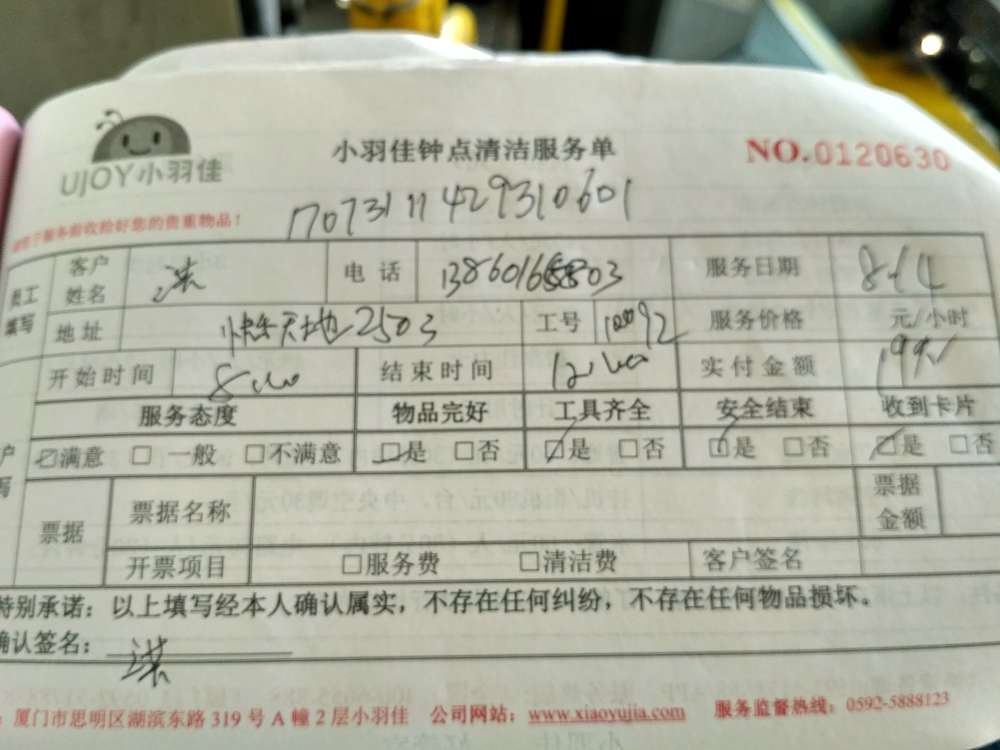 UJOY小羽佳
小羽佳钟点清洁服务单
NO.0120630
17073111429310601
服务前收捡好您的贵重物品！
员工填写
客户姓名 洪 电话 服务日期 8.14
地址 快乐天地2503 工号 服务价格 元/小时
开始时间 8:00 结束时间 12:00 实付金额
服务态度 物品完好 工具齐全 安全结束 收到卡片
☑满意 □一般 □不满意 ☑是 □否 ☑是 □否 ☑是 □否 ☑是 □否
票据 票据名称 票据金额
开票项目 □服务费 □清洁费 客户签名
特别承诺：以上填写经本人确认属实，不存在任何纠纷，不存在任何物品损坏。
确认签名：洪
厦门市思明区湖滨东路 319 号 A 幢 2 层小羽佳 公司网站：www.xiaoyujia.com 服务监督热线：0592-5888123